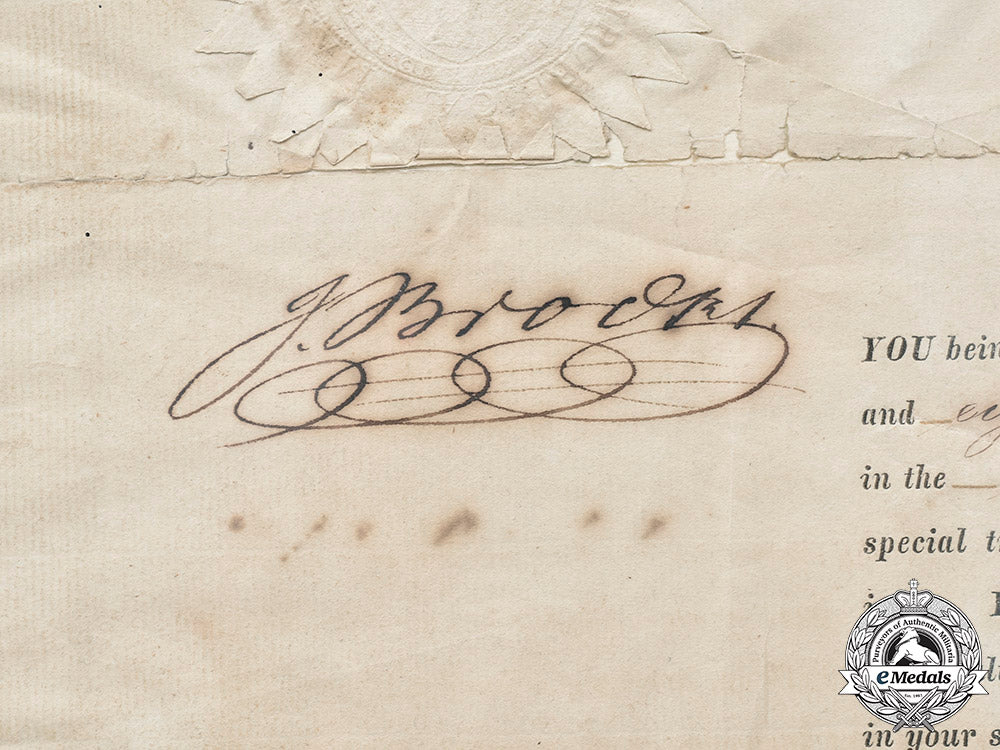 J. Brooks.
YOU bein
and
in the
special t
in your s
Purveyors of Authentic Militaria
eMedals